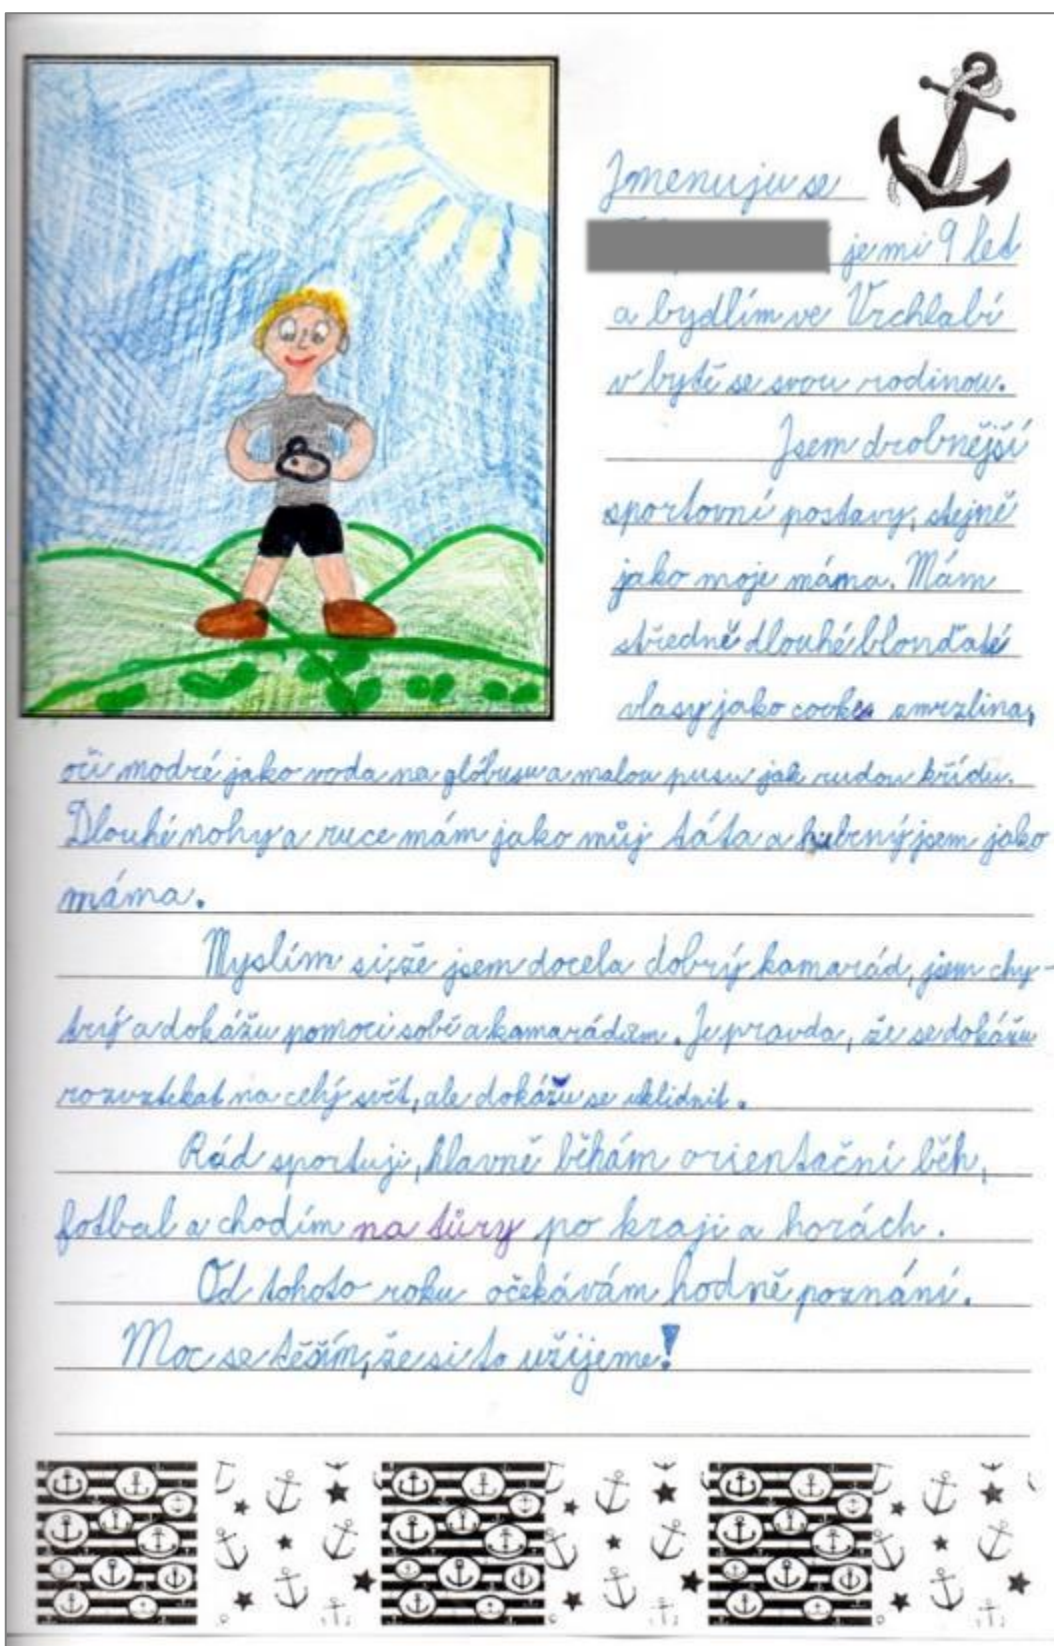 Jmenuju se
je mi 9 let
a bydlím ve Vrchlabí
v bytě se svou rodinou.
Jsem drobnější
sportovní postavy, stejně
jako moje máma. Mám
středně dlouhé blonďaté
vlasy jako cookes zmrzlina,
oči modré jako voda na glóbusu a malou pusu jak rudou křídu.
Dlouhé nohy a ruce mám jako můj táta a hubený jsem jako
máma.
Myslím si, že jsem docela dobrý kamarád, jsem chy-
trý a dokážu pomoci sobě a kamarádům. Je pravda, že se dokážu
rozvztekat na celý svět, ale dokážu se uklidnit.
Rád sportuji, hlavně běhám orientační běh,
fotbal a chodím na túry po kraji a horách.
Od tohoto roku očekávám hodně poznání.
Moc se těším, že si to užijeme!